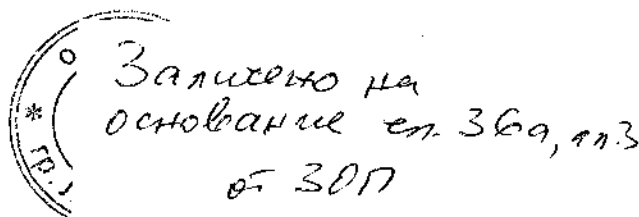 Заличено на
основание чл. 36а, ал. 3
от ЗОП
* гр.